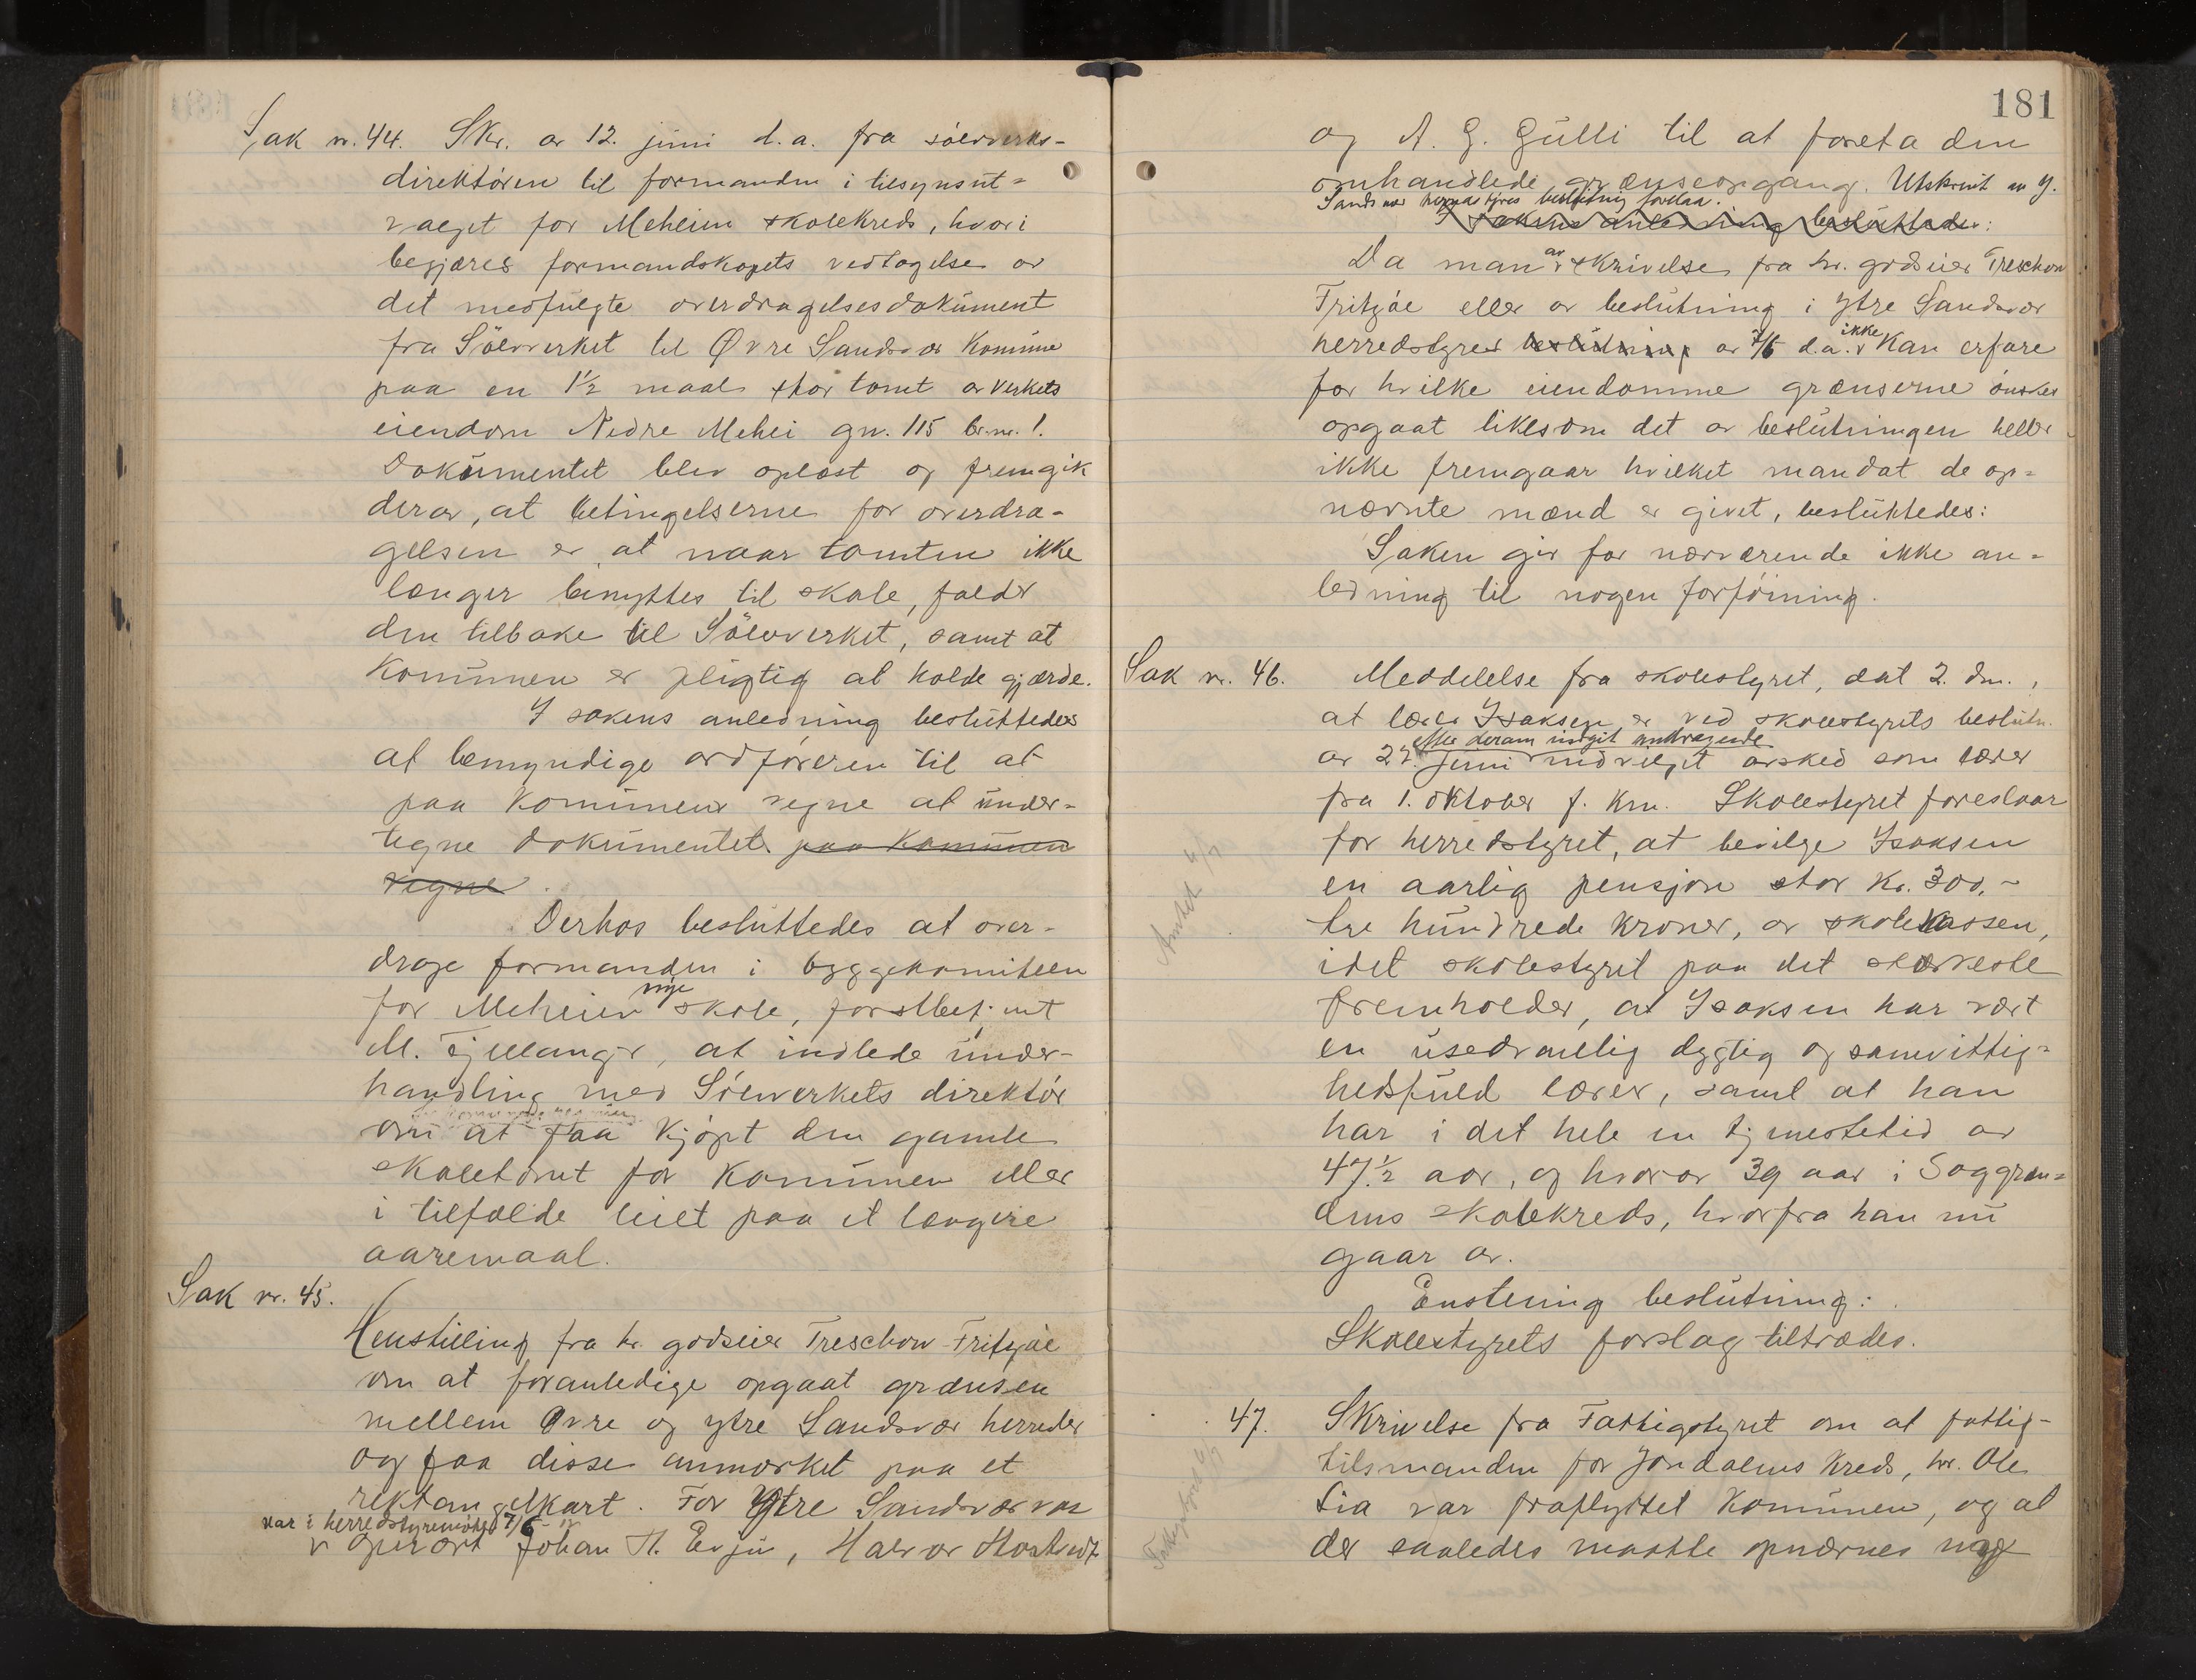 Sak nr. 44. Skr. av 12. juni d.a. fra sölvverks-
direktören til formanden i tilsynsut-
valget for Meheim skolekreds, hvori
begjæres formandskapets vedtagelse av
det medfulgte overdragelsesdokument
fra Sölvverket til Øvre Sandsvær Komune
paa en 1½ maal stor tomt av Verkets
eiendom Nedre Mehei gn. 115 br.nr. 1.
Dokumentet blev oplæst og fremgik
derav, at betingelserne for overdra-
gelsen er at naar tomten ikke
længer benyttes til skole, falder
den tilbake til Sölvverket, samt at
Komunen er pligtig at holde gjærde.
I sakens anledning besluttedes
at bemyndige ordföreren til at
paa Komunens vegne at under-
tegne dokumentet. paa Komunen
vegne.
Derhos besluttedes at over-
drage formanden i byggekomiteen
for Meheien nye skole, forstbetjent
M. Fjellanger, at indlede under-
handling med Sölvverkets direktör
om at faa kjöpt den gamle
skoletomt for Komunen eller
i tilfælde leiet paa et længere
aaremaal.
Sak nr. 45.
Henstilling fra hr. godseier Treschow-Fritzöe
om at foranledige opgaat grænsen
mellem Øvre og ytre Sandsvær herreder
og faa disse anmærket paa et
rektangelkart. For Ytre Sandsvær var
var i herredstyremöte 7/6
opnævnt Johan H. Evju, Halvor Hostvedt
181
og A. G. Gulli til at foreta den
omhandlede grænseopgang. Utskrivt av Y.
Sandsvær herredstyres beslutning forelaa.
I sakens anledning besluttedes:
Da man av skrivelse fra hr. godseier Treschow
Fritzöe eller av beslutning i Ytre Sandsvær
herredstyres beslutning av 7/6 d.a. ikke kan erfare
for hvilke eiendomme grænserne önskes
opgaat likesom det av beslutningen heller
ikke fremgaar hvilket mandat de op-
nævnte mænd er givet, besluttedes:
Saken gir for nærværende ikke an-
ledning til nogen forföining.
Sak nr. 46. Meddelelse fra skolestyret, dat 2. dm.,
at lærer Isaksen er ved skolestyrets beslutn.
efter derom indgit andragende
av 22. juni indvilget avsked som lærer
fra 1. oktober f. km. Skolestyret foreslaar
for herredstyret, at bevilge Isaksen
en aarlig pensjon stor Kr. 300.-
tre hundrede kroner, av skolekassen,
idet skolestyret paa det stærkeste
fremholder, at Isaksen har vært
en usedvanlig dygtig og samvittig-
hedsfuld lærer, samt at han
har i det hele en tjenestetid av
47½ aar, og hvorav 39 aar i Soggren-
dens skolekreds, hvorfra han nu
gaar av.
Enstemig beslutning:
Skolestyrets forslag tiltrædes.
47. Skrivelse fra Fattigstyret om at fattig-
tilsmanden for Jondalens kreds, hr. Ole
Lia var fraflyttet Komunen, og at
der saaledes maatte opnævnes nye